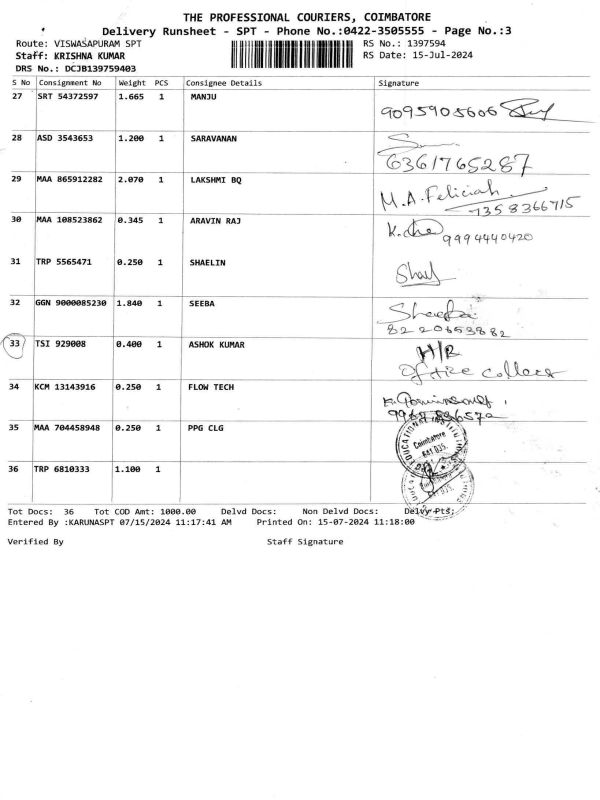 THE PROFESSIONAL COURIERS, COIMBATORE
Delivery Runsheet - SPT - Phone No.:0422-3505555 - Page No.:3
Route: VISWASAPURAM SPT
RS No.: 1397594
Staff: KRISHNA KUMAR
RS Date: 15-Jul-2024
DRS No.: DCJB139759403
S No Consignment No Weight PCS Consignee Details Signature
27 SRT 54372597 1.665 1 MANJU 9095905606
28 ASD 3543653 1.200 1 SARAVANAN
6361765287
29 MAA 865912282 2.070 1 LAKSHMI BQ M.A.Feliciah
7358366715
30 MAA 108523862 0.345 1 ARAVIN RAJ 9994440420
31 TRP 5565471 0.250 1 SHAELIN
32 GGN 9000085230 1.840 1 SEEBA
8220653882
33 TSI 929008 0.400 1 ASHOK KUMAR H/R
34 KCM 13143916 0.250 1 FLOW TECH
35 MAA 704458948 0.250 1 PPG CLG
Coimbatore
641 035
36 TRP 6810333 1.100 1
Tot Docs: 36 Tot COD Amt: 1000.00 Delvd Docs: Non Delvd Docs: Delvy Pts:
Entered By :KARUNASPT 07/15/2024 11:17:41 AM Printed On: 15-07-2024 11:18:00
Verified By Staff Signature